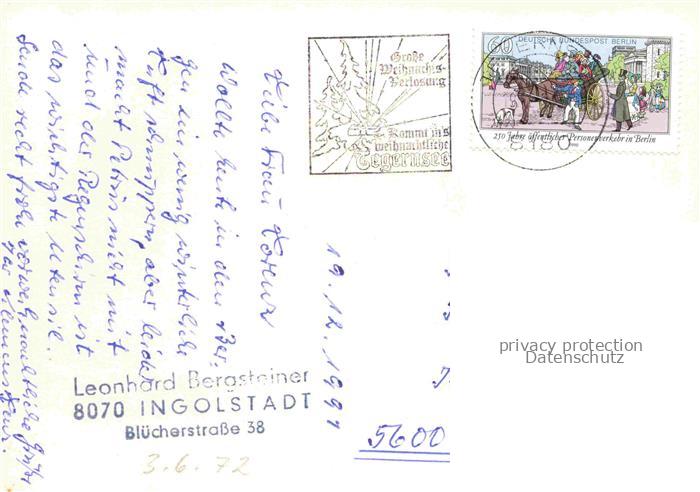 Große
Weihnachts-
Verlosung
Kommt ins
weihnachtliche
Tegernsee
60
DEUTSCHE BUNDESPOST BERLIN
250 Jahre öffentlicher Personenverkehr in Berlin
8180
19.12.1991
Liebe Frau Lorenz
Wollte heute in den Ber-
gen ein wenig winterliche
Luft schnuppern, aber leider
macht Petrus nicht mit
und der Regenschirm ist
das wichtigste Utensil..
Sende recht frohe vorweihnachtliche Grüße
Leonhard Bergsteiner
8070 INGOLSTADT
Blücherstraße 38
3.6.72
5600
privacy protection
Datenschutz